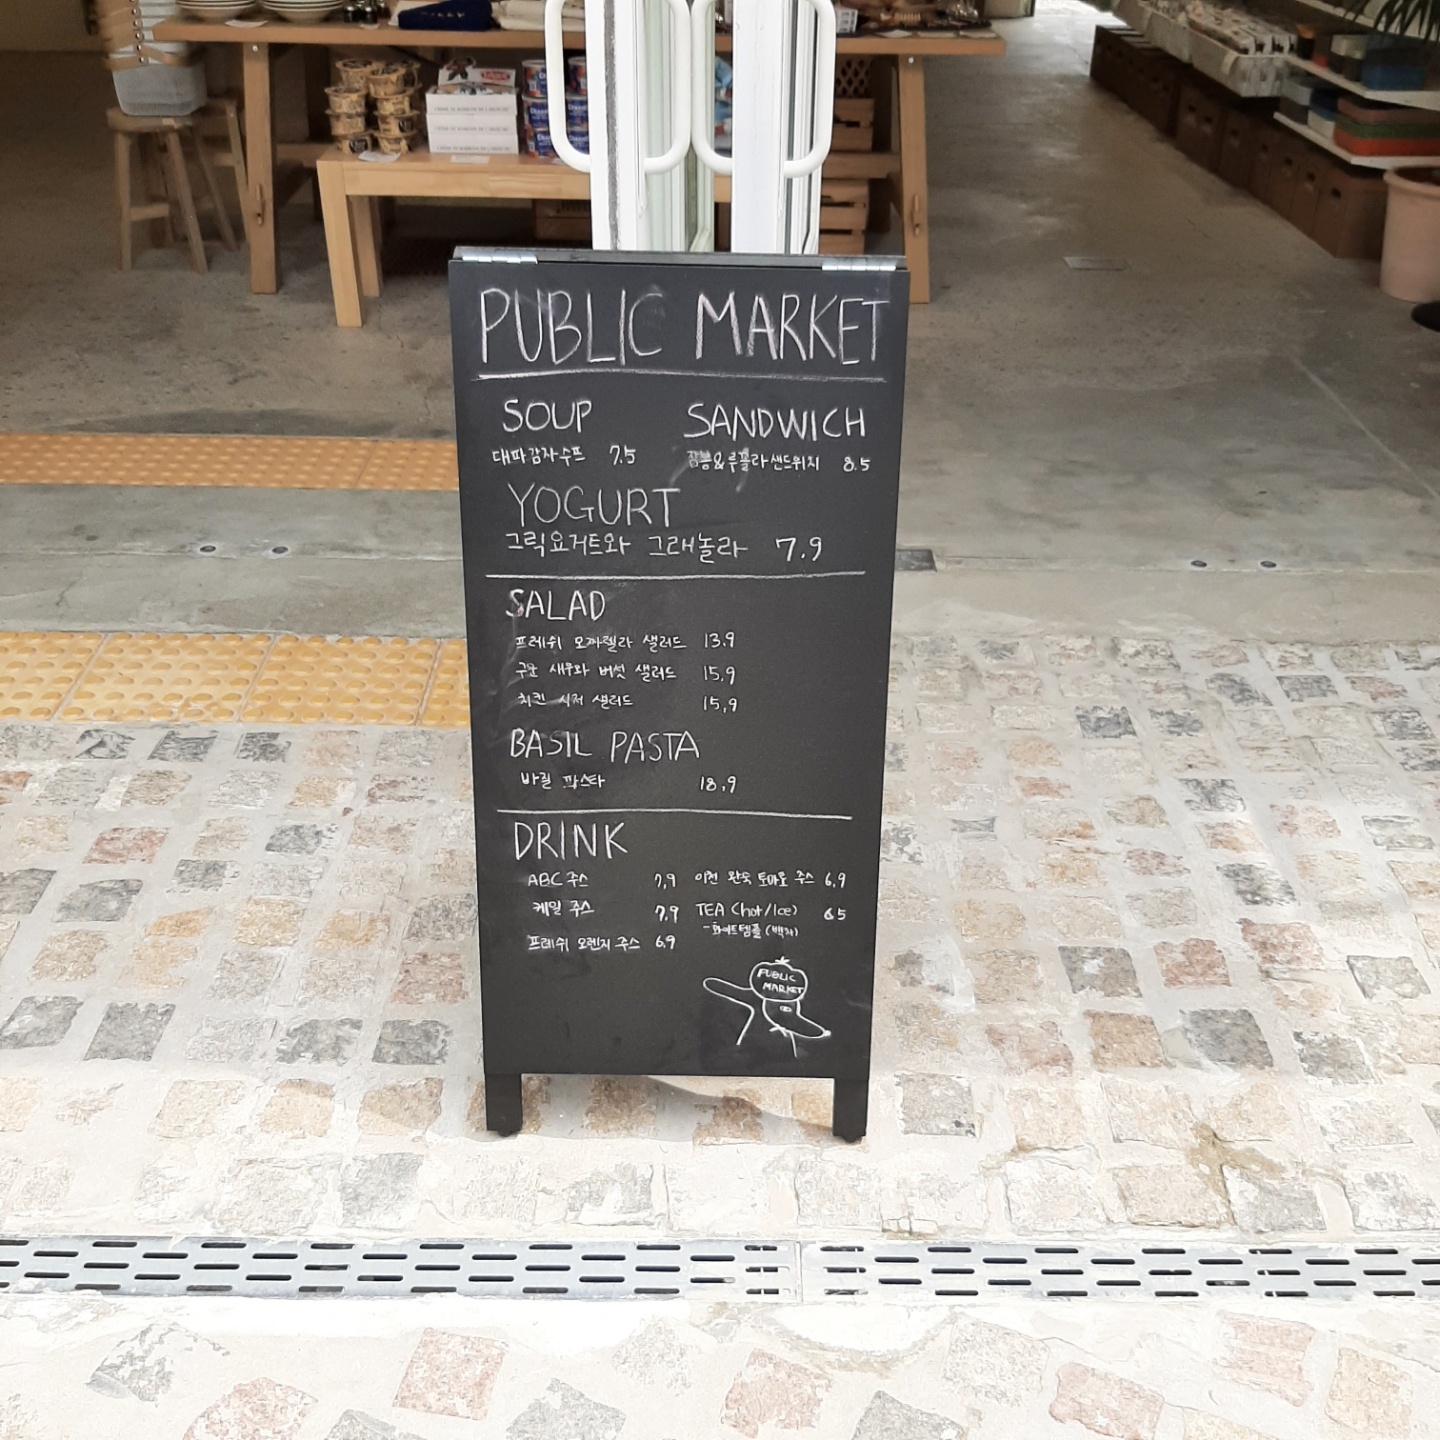 PUBLIC MARKET
SOUP
대파감자수프 7.5
SANDWICH
잠봉&루꼴라샌드위치 8.5
YOGURT
그릭요거트와 그래놀라 7.9
SALAD
프레쉬 모짜렐라 샐러드 13.9
구운 새우와 버섯 샐러드 15.9
치킨 시저 샐러드 15.9
BASIL PASTA
바질 파스타 18.9
DRINK
ABC 주스 7.9
케일 주스 7.9
프레쉬 오렌지 주스 6.9
이천 완숙 토마토 주스 6.9
TEA (hot/Ice) 6.5
-화이트템플 (백차)
PUBLIC
MARKET